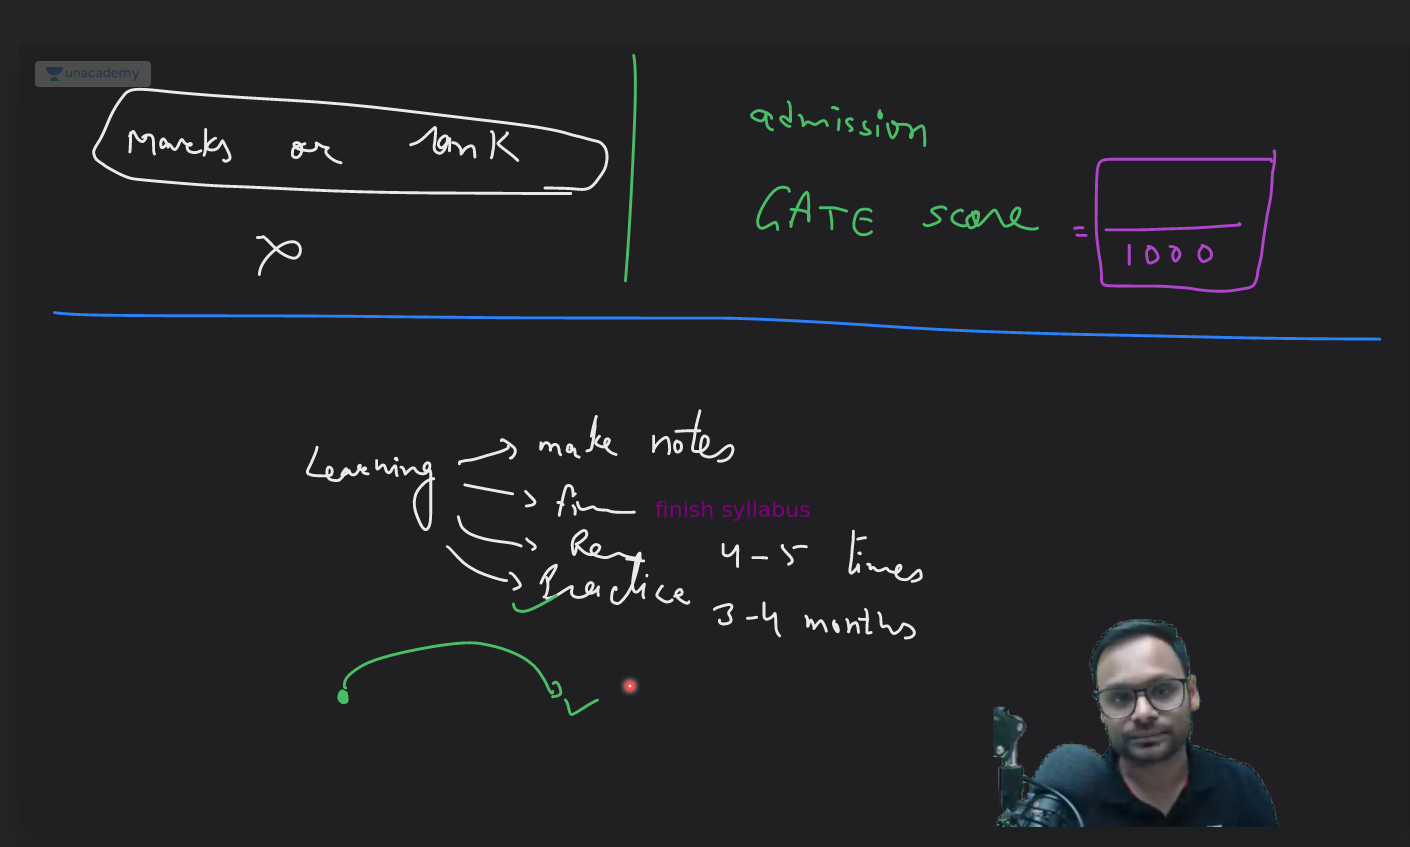 unacademy
Marks or rank
admission
GATE score =
1000
Learning
make notes
finish syllabus
4-5 times
Practice
3-4 months